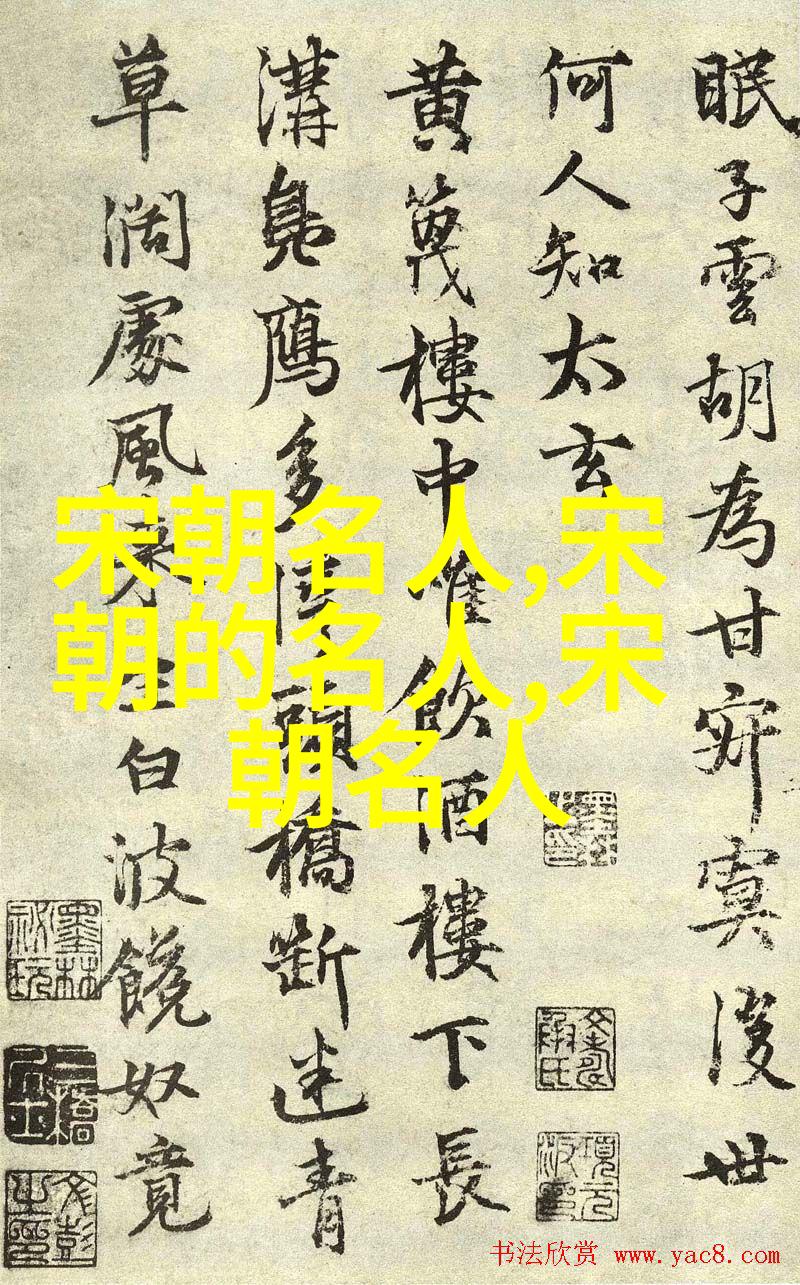 眠子雲胡為甘寂寞後世
何人知太玄
黄篾樓中飲酒樓下長
溝鳧鴈多頭橋斷迷青
草濶處風來生白波饞奴竟
宋朝名人,宋
朝的名人,宋
朝名人
书法欣赏 www.yac8.com